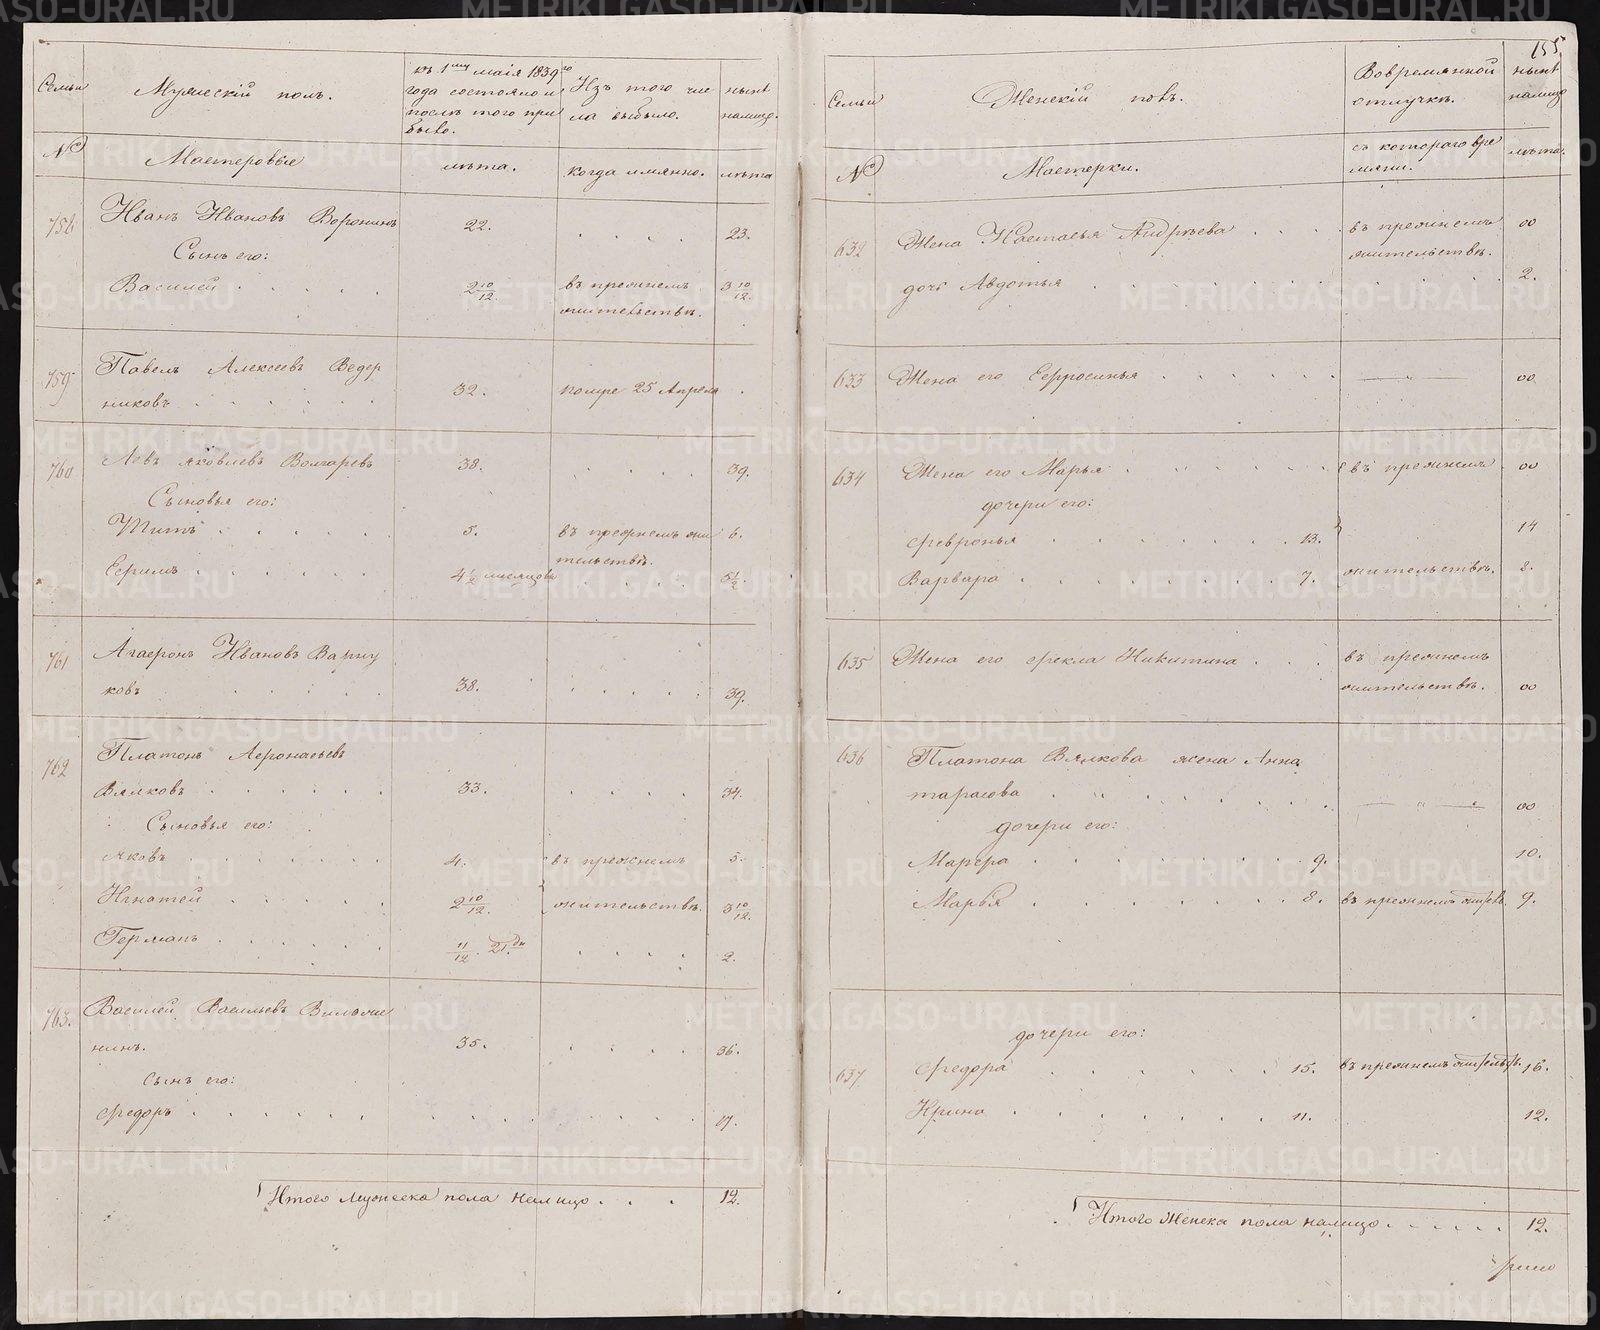 155.
Семьи
Мужескій полъ.
къ 1му маія 1839го
года состояло и
послѣ того при
было.
Изъ того чис
ла выбыло.
нынѣ
налицо.
№
Мастеровые
лѣта.
когда имянно.
лѣта
758
Иванъ Ивановъ Воронинъ
22.
23.
Сынъ его:
Василей
2 10/12.
въ прежнемъ
жительствѣ.
3 10/12.
759
Павелъ Алексеевъ Ведер
никовъ
32.
помре 25 Апреля
760
Левъ Яковлевъ Волгаревъ
38.
39.
Сыновья его:
Титъ
5.
въ прежнемъ жи
тельствѣ.
6.
Ефимъ
4 1/2 месяцовъ
5 1/2.
761
Агафонъ Ивановъ
ковъ
38.
39.
762
Платонъ Афонасьевъ
Вялковъ
33.
34.
Сыновья его:
Яковъ
4.
въ прежнемъ
5.
Игнатей
2 10/12.
жительствѣ.
3 10/12.
Германъ
11/12. 21 дн
2.
763.
Василей Васильевъ
нинъ.
35.
36.
Сынъ его:
Федоръ
17.
Итого мужеска пола налицо
12.
Семьи
Женскій полъ.
Вовремянной
отлучкѣ.
нынѣ
налицо
№
Мастерки.
съ котораго вре
мяни.
лѣта.
632
Жена Настасья Андреева
въ прежнемъ
жительствѣ.
00
дочь Авдотья
2.
633
Жена его Ефросинья
00
634
Жена его Марья
въ прежнемъ
00
дочери его:
Февронья
13.
14
Варвара
7.
жительствѣ.
8.
635
Жена его Фекла Никитина
въ прежнемъ
жительствѣ.
00
636
Платона Вялкова жена Анна
тарасова
00
дочери его:
Марфа
9.
10.
Марья
8.
въ прежнемъ
9.
дочери его:
637
Федора
15.
въ прежнемъ
16.
Ирина
11.
12.
Итого женска пола налицо
12.
METRIKI.GASO-URAL.RU